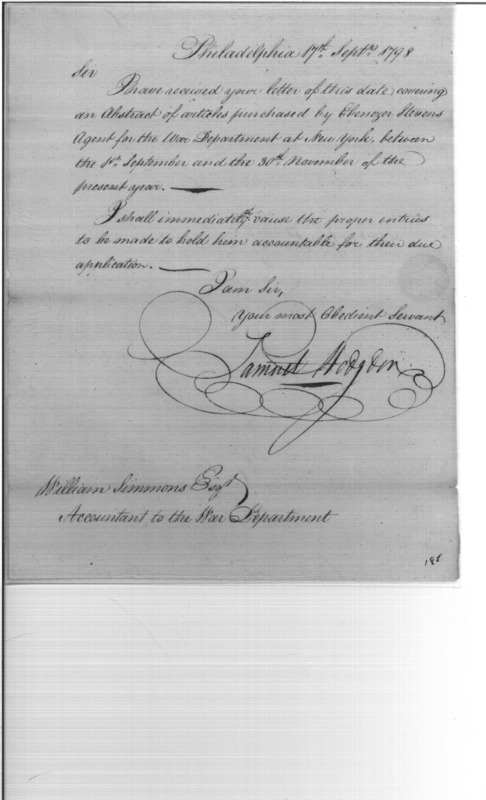 Philadelphia 17th. Septbr. 1798
Sir
I have received your letter of this date, covering
an Abstract of articles purchased by Ebenezer Stevens
Agent for the War Department at New York, between
the 1st. September and the 30th. November of the
present year. —
I shall immediately cause the proper entries
to be made to hold him accountable for their due
application. —
I am Sir,
Your most Obedient Servant
Samuel Hodgdon
William Simmons Esqr.
Accountant to the War Department